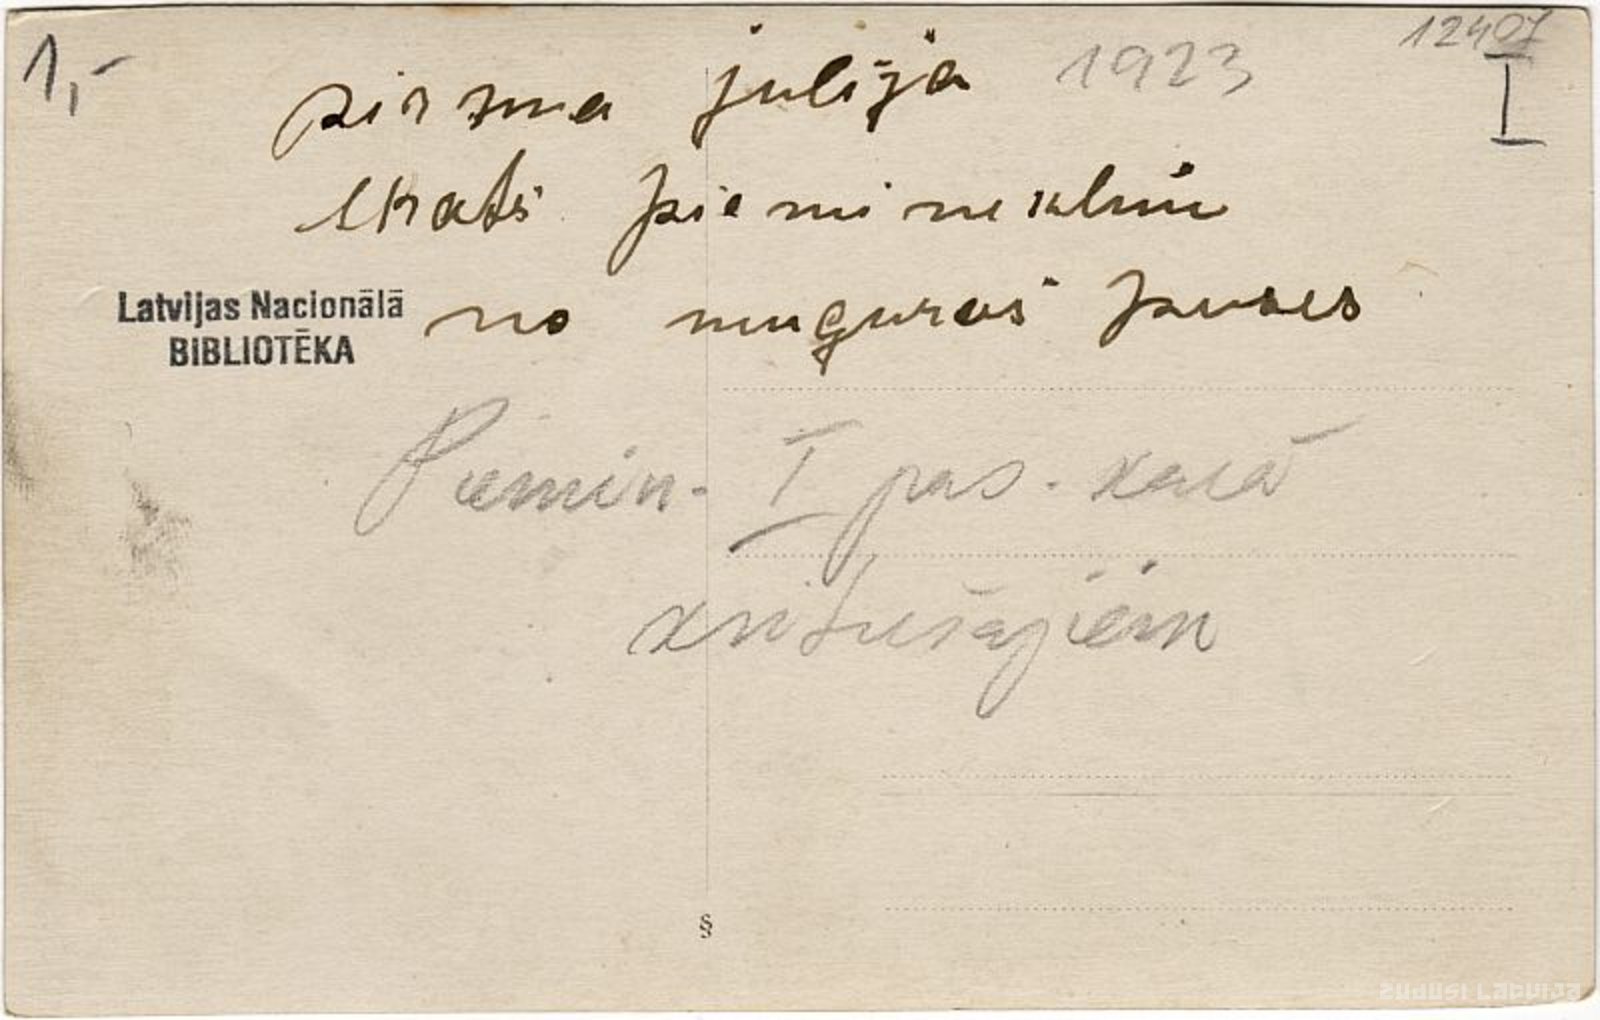 1,-
12407
I
pirma julija 1923
skats pieminekлim
no muguras puses
Latvijas Nacionālā
BIBLIOTĒKA
Piemin. I pas. karā
kritušajiem
§
zudusi Latvija